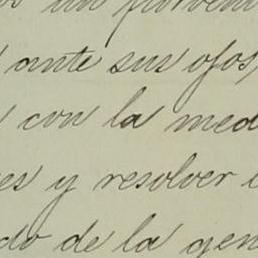 un porveni
ante sus ojos,
con la med
es y resolver
do de la gen